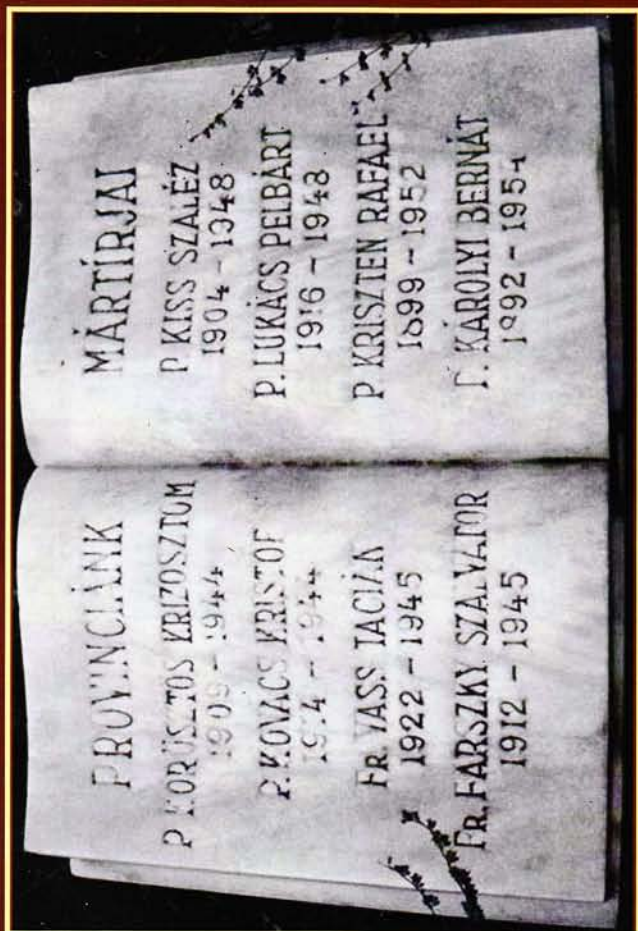 PROVINCIÁNK
P KŐRÖSZTÖS KRIZOSZTOM
1909 - 1944
P. KOVÁCS KRISTÓF
1914 - 1944
FR. VASS TACIÁN
1922 - 1945
FR. FARSZKY SZALVÁTOR
1912 - 1945
MÁRTÍRJAI
P KISS SZALÉZ
1904 - 1948
P. LUKÁCS PELBÁRT
1916 - 1948
P KRISZTEN RAFAEL
1899 - 1952
P. KÁROLYI BERNÁT
1892 - 1954